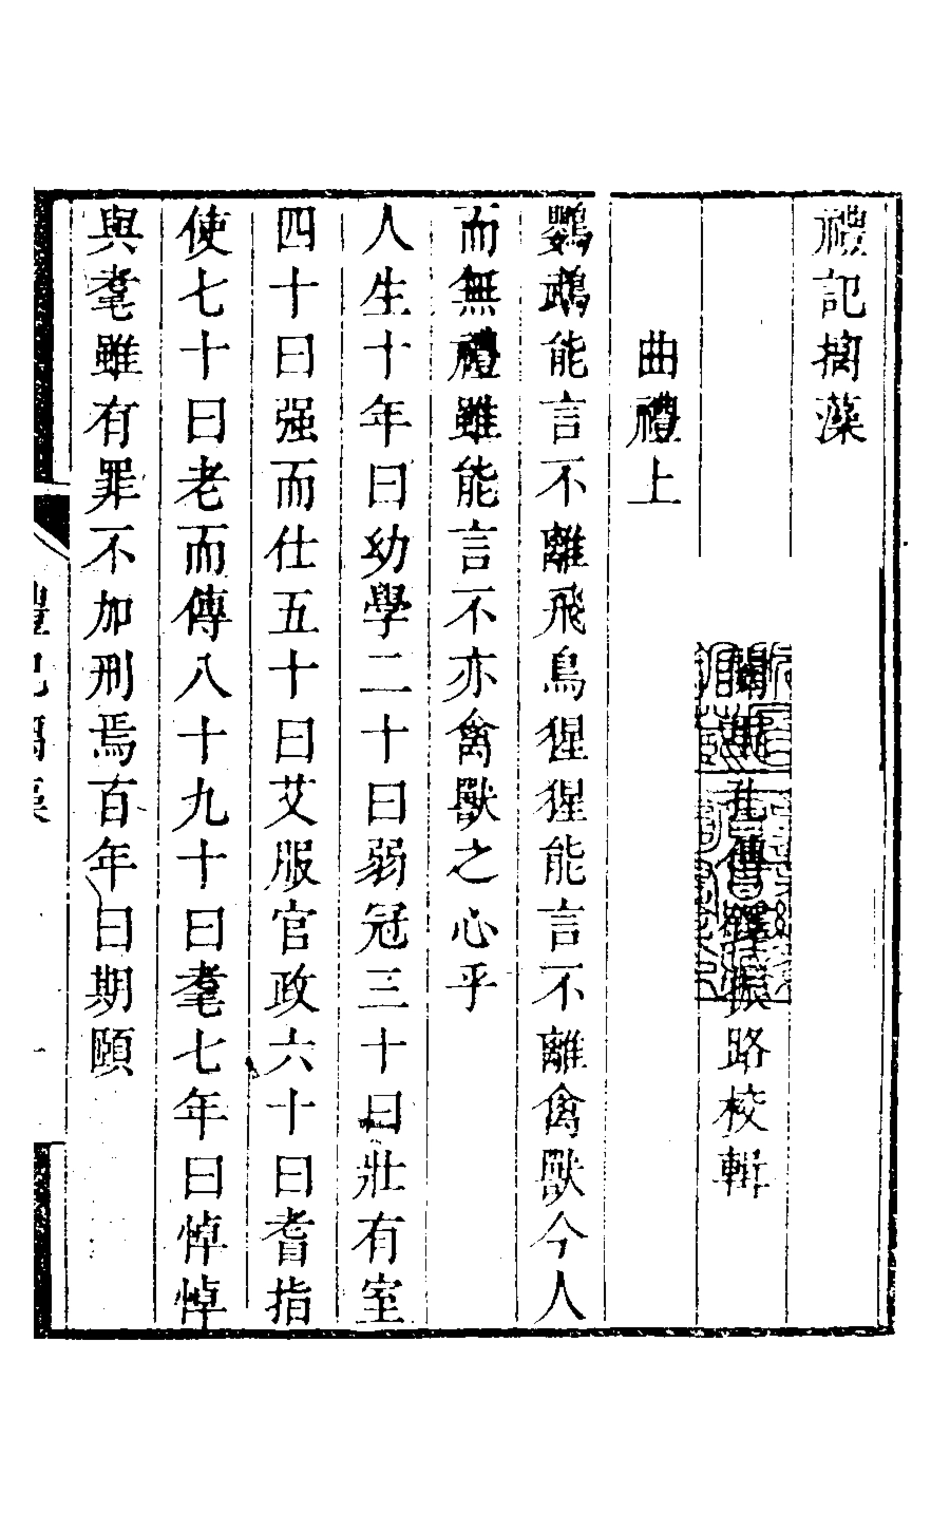 禮記摘藻
孔傳鐸振路校輯
曲禮上
鸚鵡能言不離飛鳥猩猩能言不離禽獸今人
而無禮雖能言不亦禽獸之心乎
人生十年曰幼學二十曰弱冠三十曰壯有室
四十曰强而仕五十曰艾服官政六十曰耆指
使七十曰老而傳八十九十曰耄七年曰悼悼
與耄雖有罪不加刑焉百年曰期頤
禮記摘藻
一